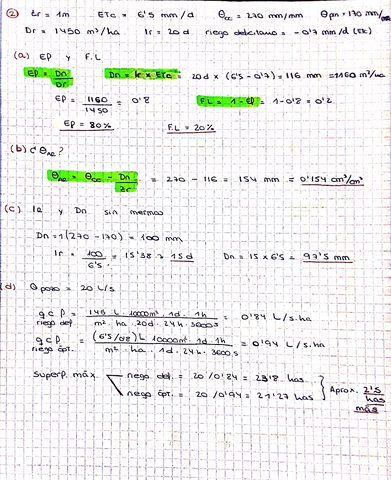 ② Zr = 1m   ETc = 6'5 mm/d   θcc = 270 mm/mm   θpm = 170 mm/
Dr = 1450 m³/ha   Ir = 20d   riego deficitario = -0'7 m/d (ETc)
(a) EP y F.L
EP = Dn/Dr   Dn = Ir x ETc = 20d x (6'5 - 0'7) = 116 mm = 1160 m³/ha
EP = 1160/1450 = 0'8   F.L = 1 - EP = 1 - 0'8 = 0'2
EP = 80%   F.L = 20%
(b) ¿ θAR?
θAR = θcc - Dn/Zr = 270 - 116 = 154 mm = 0'154 cm³/cm³
(c) IR y Dn sin mermas
Dn = 1(270 - 170) = 100 mm
Ir = 100/6'5 = 15'38 ≈ 15d   Dn = 15 x 6'5 = 97'5 mm
(d) Q pozo = 20 L/s
q c p = 145 L · 10000m² · 1d · 1h / m² · ha · 20d · 24h · 3600s = 0'84 L/s.ha
riego def
q c p = (6'5/0'8) L · 10000m² · 1d · 1h / m² · ha · 1d · 24h · 3600s = 0'94 L/s.ha
riego ópt.
Superf. máx. riego def. = 20/0'84 = 23'8 has.
riego ópt. = 20/0'94 = 21'27 has
Aprox. 2'5 has más